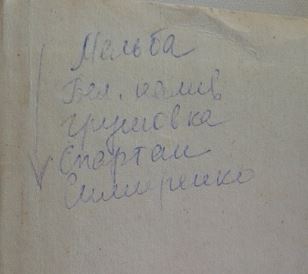 Мельба
Бел. налив
Грушовка
Спартан
Симиренко